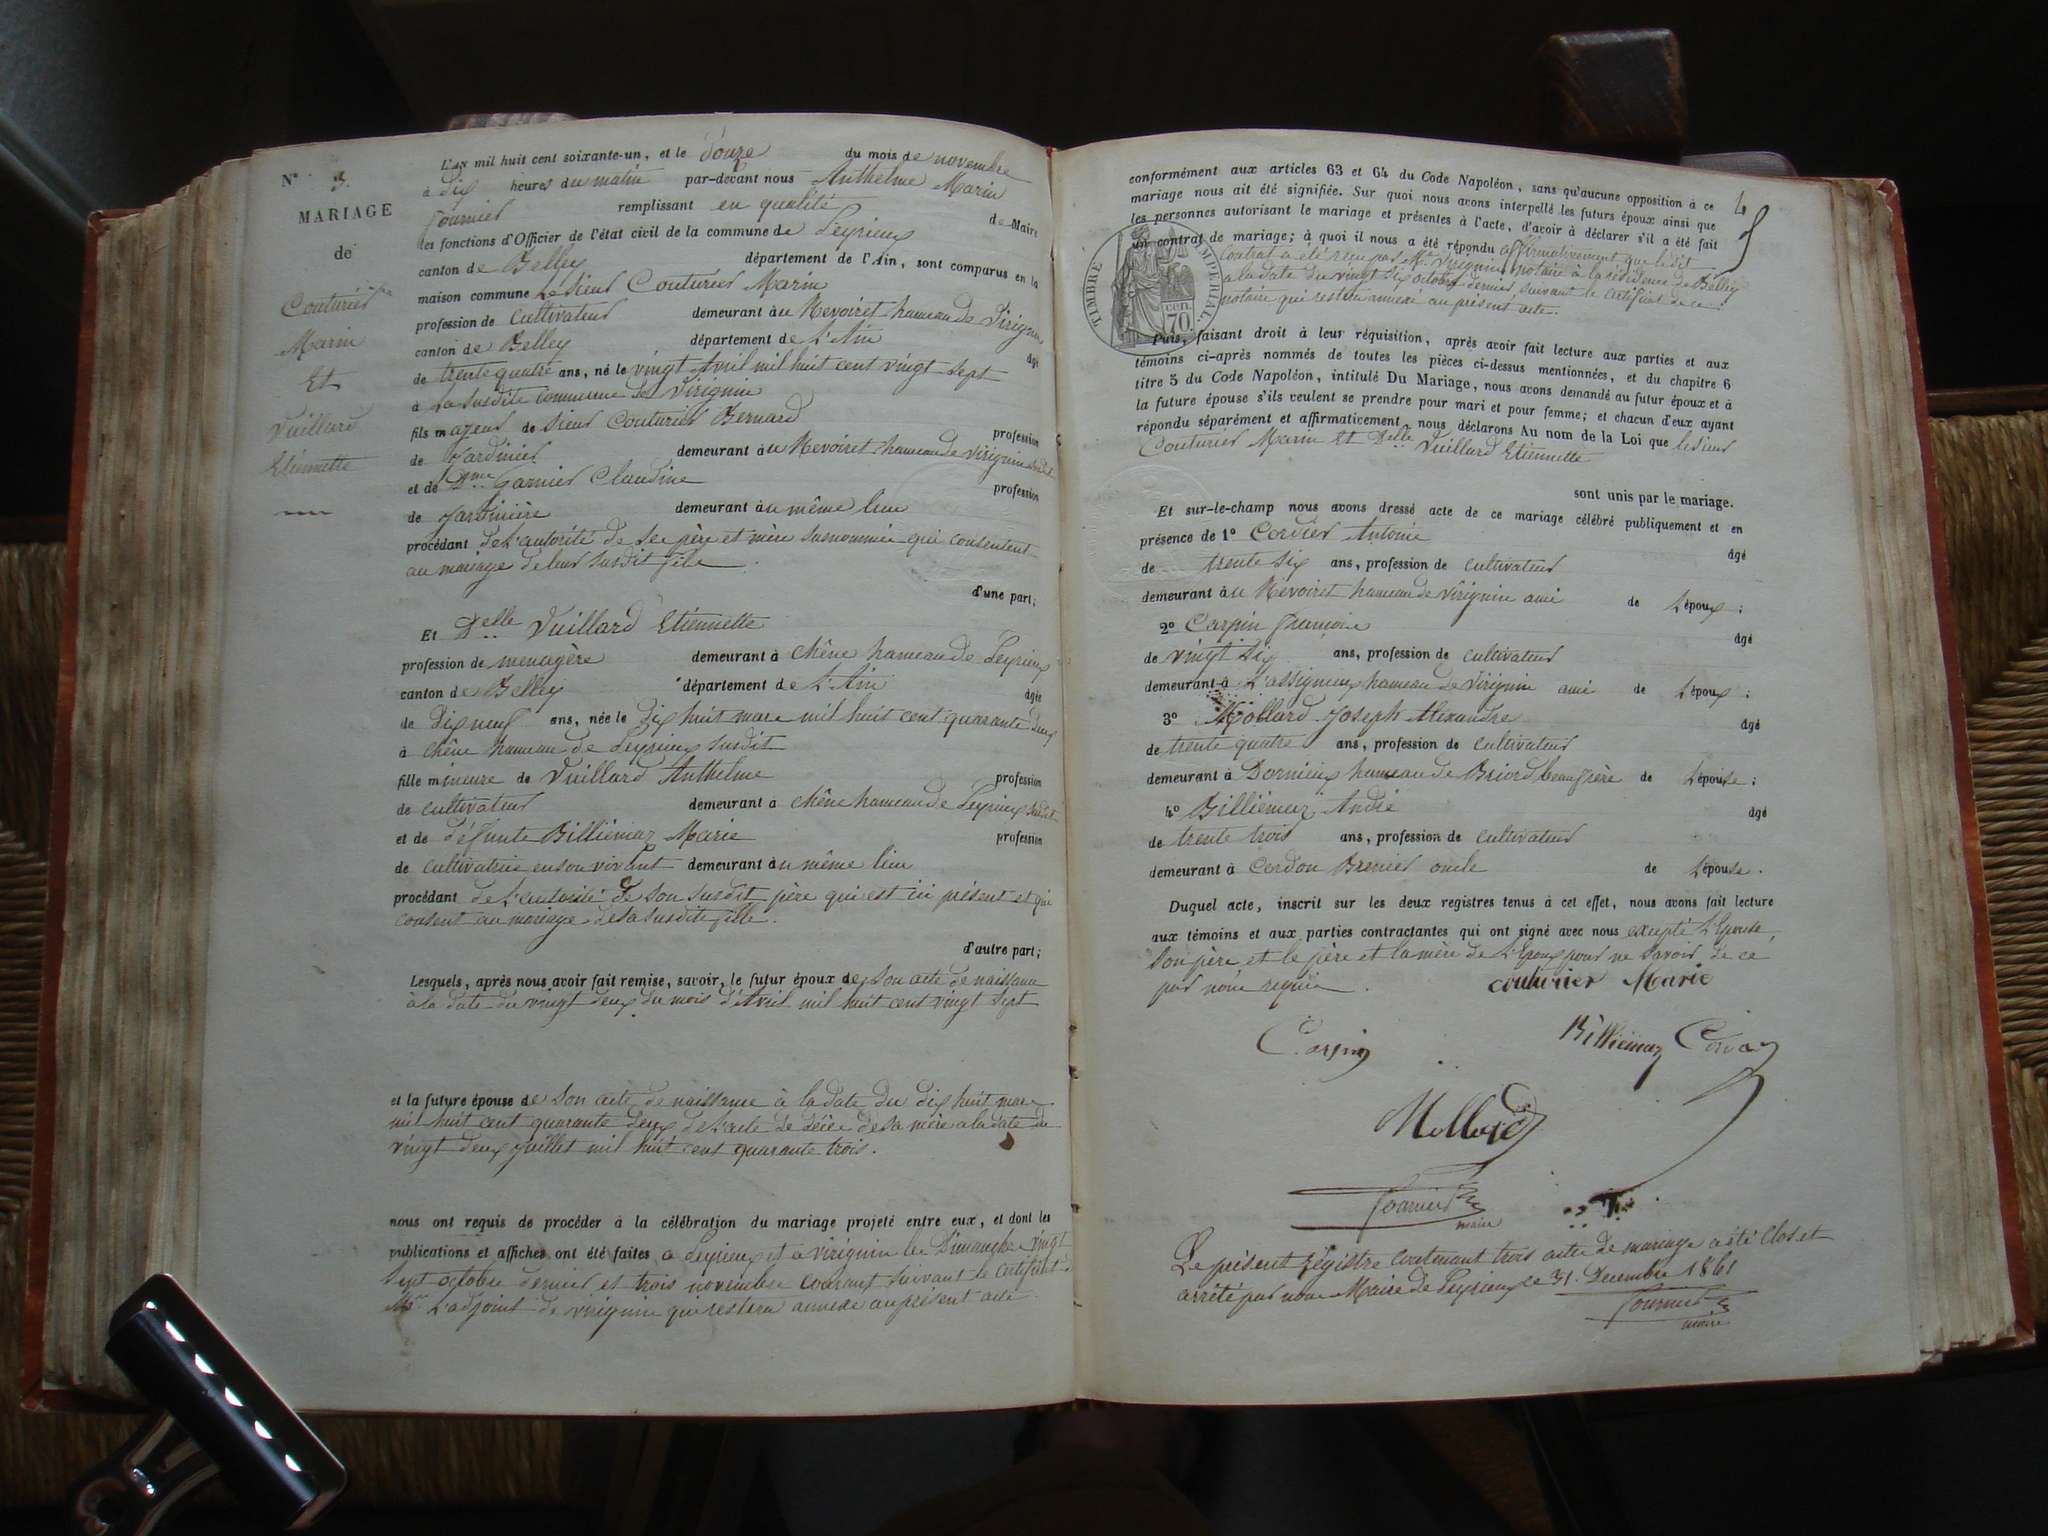 N° 3.
MARIAGE
de
Couturier
Marin
Et
Vuillard
Etiennette
L'an mil huit cent soixante-un, et le douze du mois de novembre
à dix heures du matin par-devant nous Anthelme Marin
Fournier remplissant en qualité de Maire
les fonctions d'Officier de l'état civil de la commune de Peyrieux
canton de Belley département de l'Ain, sont comparus en la
maison commune Le sieur Couturier Marin
profession de cultivateur demeurant au Nevoiret hameau de Virignin
canton de Belley département de L'Ain âgé
de trente quatre ans, né le vingt Avril mil huit cent vingt sept
à La susdite commune de Virignin
fils majeur de sieur Couturier Bernard profession
de Jardinier demeurant au Nevoiret hameau de Virignin susdit
et de Dme Garnier Claudine profession
de Jardinière demeurant au même lieu
procédant de L'autorité de ses père et mère susnommés qui consentent
au mariage de leur susdit fils.
d'une part;
Et Delle Vuillard Etiennette
profession de menagère demeurant à Chêne hameau de Peyrieux
canton de Belley département de L'Ain âgée
de Dix neuf ans, née le Dix huit mars mil huit cent quarante deux
à Chêne hameau de Peyrieux susdit
fille mineure de Vuillard Anthelme profession
de cultivateur demeurant à Chêne hameau de Peyrieux susdit
et de défunte Billiémaz Marie profession
de cultivatrice en son vivant demeurant au même lieu
procédant de L'autorité de son susdit père qui est ici présent et qui
consent au mariage de sa susdite fille.
d'autre part;
Lesquels, après nous avoir fait remise, savoir, le futur époux de son acte de naissance
à la date du vingt deux du mois d'Avril mil huit cent vingt sept
et la future épouse de son acte de naissance à la date du dix huit mars
mil huit cent quarante deux de L'acte de décès de sa mère à la date du
vingt deux juillet mil huit cent quarante trois.
nous ont requis de procéder à la célébration du mariage projeté entre eux, et dont les
publications et affiches ont été faites à Peyrieux et à Virignin les Dimanches vingt
sept octobre dernier et trois novembre courant suivant le certificat de
Mr L'adjoint de Virignin qui restera annexé au présent acte.
4
conformément aux articles 63 et 64 du Code Napoléon, sans qu'aucune opposition à ce
mariage nous ait été signifiée. Sur quoi nous avons interpellé les futurs époux ainsi que
les personnes autorisant le mariage et présentes à l'acte, d'avoir à déclarer s'il a été fait
un contrat de mariage; à quoi il nous a été répondu affirmativement que le dit
Contrat a été reçu par Me notaire à la résidence de Belley
à la date du vingt six octobre dernier suivant le certificat de ce
notaire qui restera annexé au présent acte.
TIMBRE IMPERIAL
70 cen
Puis, faisant droit à leur réquisition, après avoir fait lecture aux parties et aux
témoins ci-après nommés de toutes les pièces ci-dessus mentionnées, et du chapitre 6
titre 5 du Code Napoléon, intitulé Du Mariage, nous avons demandé au futur époux et à
la future épouse s'ils veulent se prendre pour mari et pour femme; et chacun d'eux ayant
répondu séparément et affirmativement, nous déclarons Au nom de la Loi que le sieur
Couturier Marin Et Delle Vuillard Etiennette
sont unis par le mariage.
Et sur-le-champ nous avons dressé acte de ce mariage célébré publiquement et en
présence de 1° Cordier Antoine âgé
de trente six ans, profession de cultivateur
demeurant au Nevoiret hameau de Virignin ami de L'époux;
2° Carpin Françoise âgé
de vingt six ans, profession de cultivateur
demeurant à L'assignieux hameau de Virignin ami de L'époux;
3° Mollard Joseph Alexandre âgé
de trente quatre ans, profession de cultivateur
demeurant à Dornieux hameau de Briord beau frère de L'épouse;
4° Billiémaz André âgé
de trente trois ans, profession de cultivateur
demeurant à Cordon Brenier oncle de L'épouse.
Duquel acte, inscrit sur les deux registres tenus à cet effet, nous avons fait lecture
aux témoins et aux parties contractantes qui ont signé avec nous excepté L'Epouse,
son père et le père et la mère de L'Epoux pour ne savoir, de ce
par nous requis.
couturier Marin
Carpin
Billiemaz
Mollard
Fournier
maire
Le présent Régistre contenant trois actes de mariage a été Clos et
arrêté par nous Maire de Peyrieux ce 31. Decembre 1861
Fournier
maire